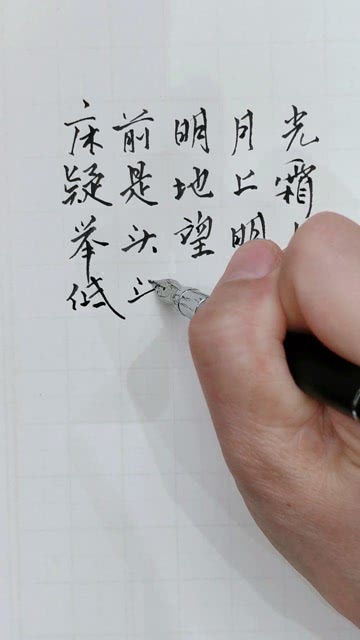 床前明月光
疑是地上霜
举头望明
低